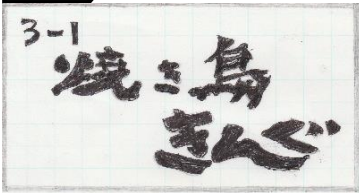 3-1
焼き鳥
きんぐ